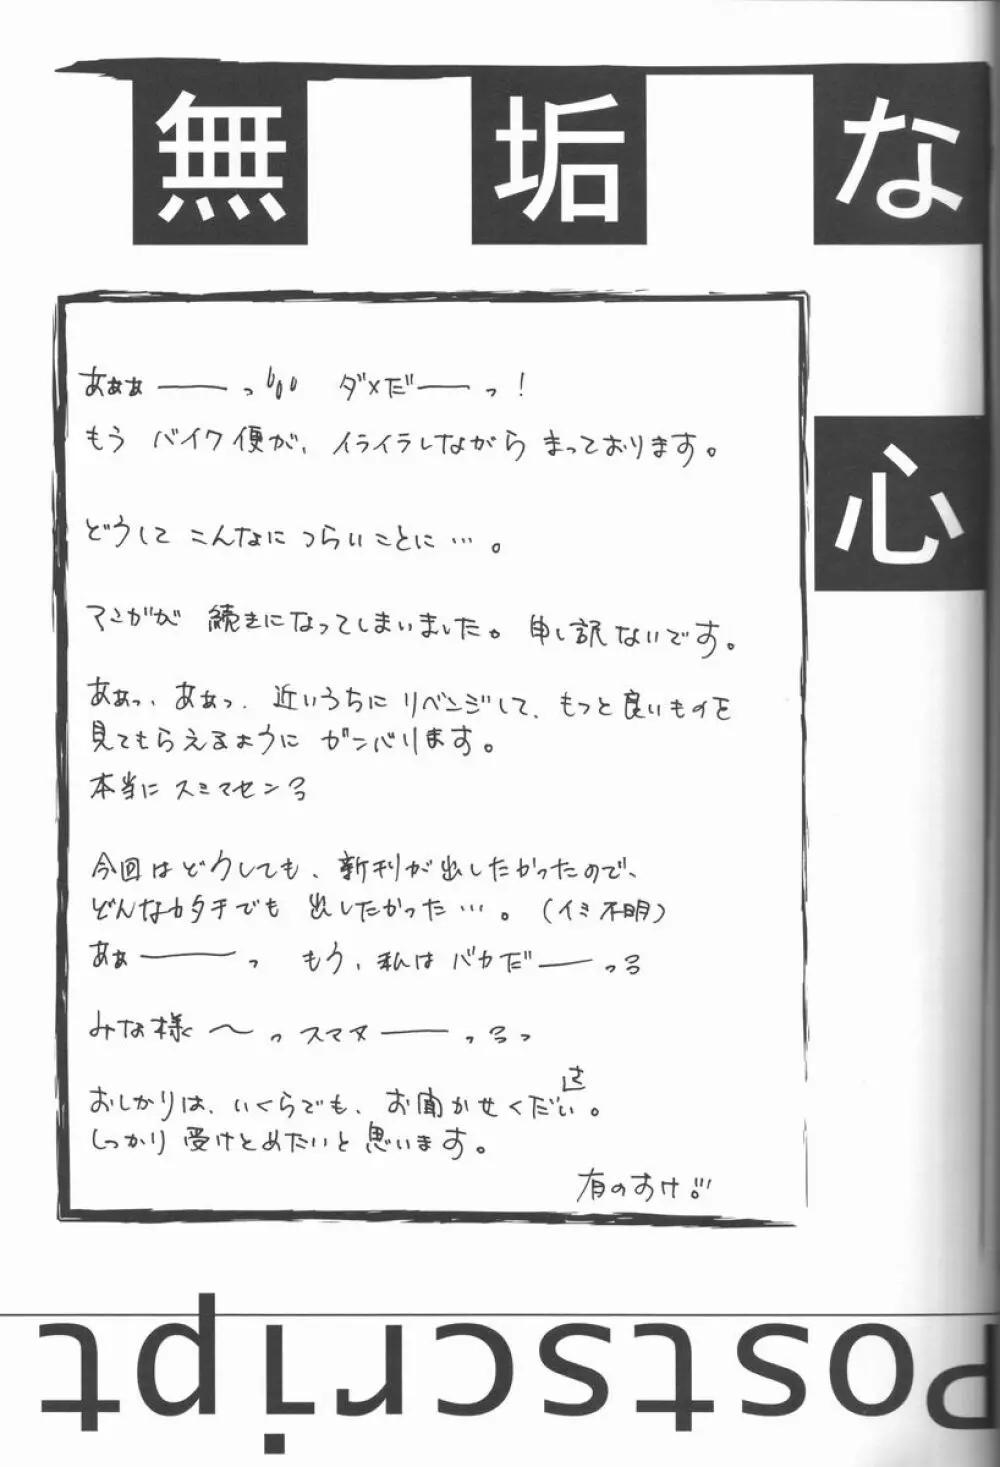 無垢な
心
あぁぁ――っ ダメだ――っ!
もう バイク便が、イライラしながら まっております。
どうして こんなに つらいことに…。
マンガが 続きになってしまいました。申し訳ないです。
あぁっ、あぁっ、近いうちに リベンジして、もっと良いものを
見てもらえるように ガンバリます。
本当に スミマセンっ
今回はどうしても、新刊が出したかったので、
どんなカタチでも 出したかった…。(イミ不明)
あぁ――っ もう、私は バカだ――っ
みな様 〜っ スマヌ――っ
おしかりは、いくらでも、お聞かせください。
しっかり 受けとめたいと 思います。
有のすけ。
Postscript